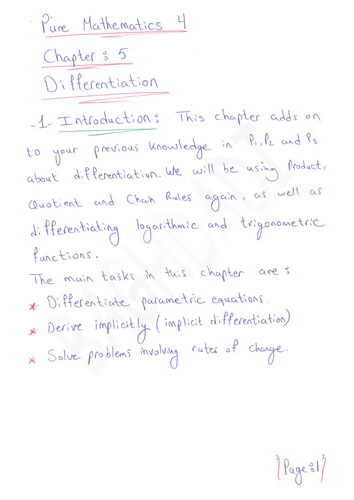 Pure Mathematics 4
Chapter : 5
Differentiation
-1- Introduction : This chapter adds on
to your previous knowledge in P1, P2 and P3
about differentiation. We will be using Product,
Quotient and Chain Rules again, as well as
differentiating logarithmic and trigonometric
functions.
The main tasks in this chapter are :
* Differentiate parametric equations.
* Derive implicitly (implicit differentiation)
* Solve problems involving rates of change.
{Page:1}